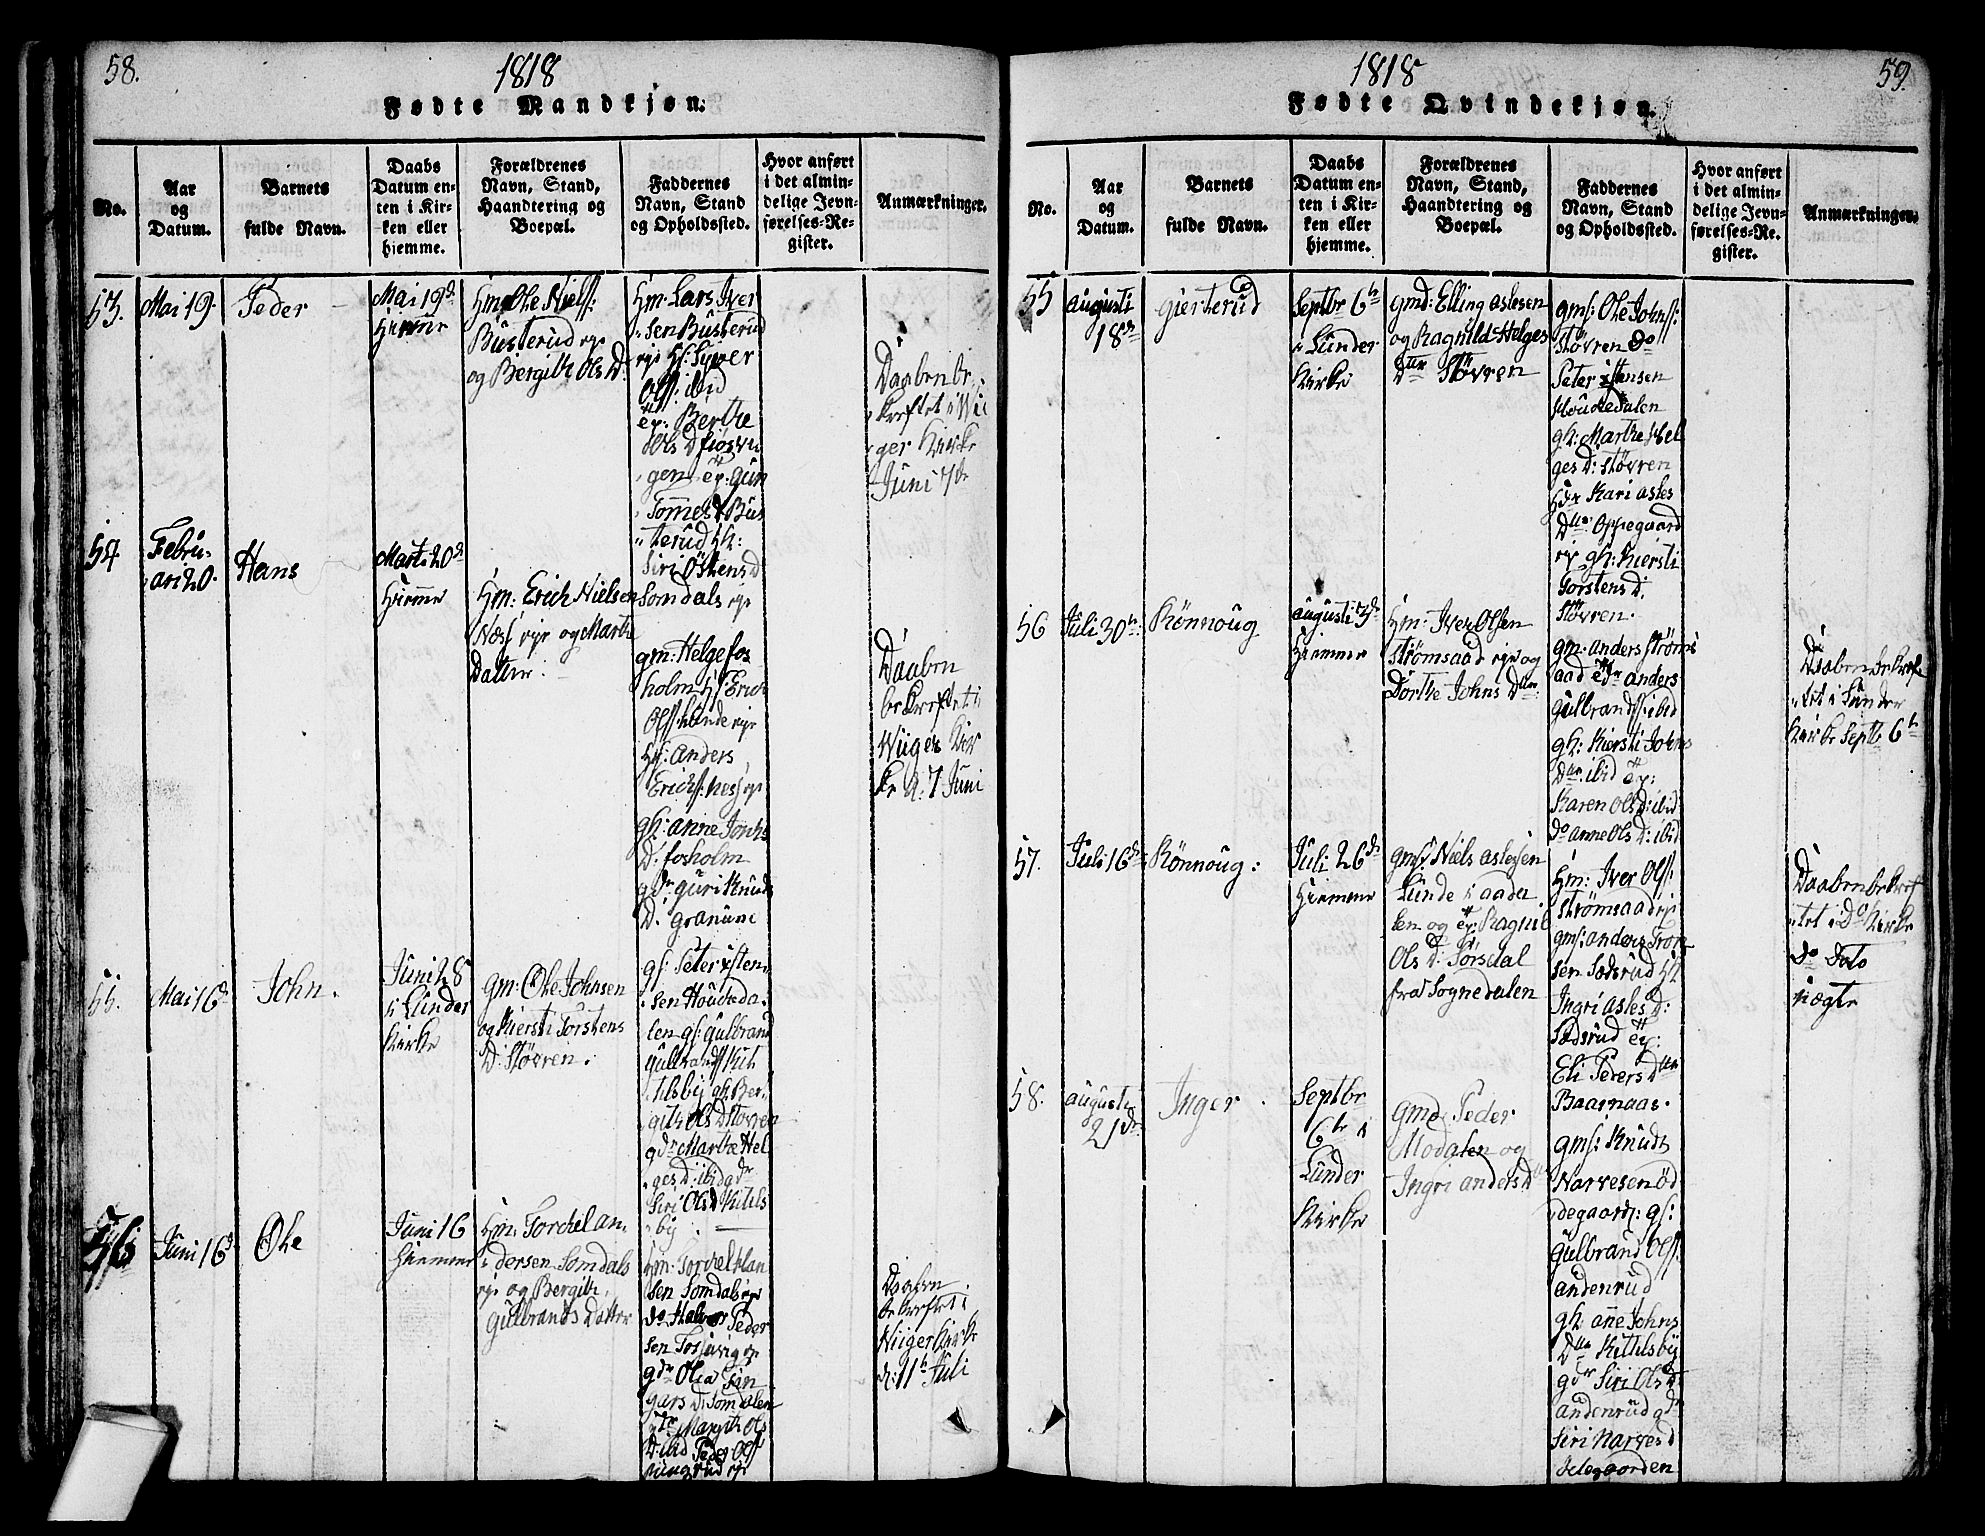 58.
1818
Fødte Mandkjøn.
No.
Aar
og
Datum.
Barnets
fulde Navn.
Daabs
Datum en-
ten i Kir-
ken eller
hjemme.
Forældrenes
Navn, Stand,
Haandtering og
Boepæl.
Faddernes
Navn, Stand
og Opholdssted.
Hvor anført
i det almin-
delige Jevn-
førelses-Re-
gister.
Anmærkninger.
53.
Mai 19.
Peder
Mai 19d
Hiemme
Hm: Ole Nielss:
Busterud
og Bergithe Ols D:
Hm: Lars Iver
sen Busterud
Hs: Syver
Olss: ibid
Berthe
Ols D
gen
Tommes D Bus
terud Hk:
Siri Östens D
Somdals eje
Daaben be
kreftet i Wii
ger Kirke
Juni 7de
54
Febru-
ari 20.
Hans
Marti 20d
Hiemme
Hm: Erich Nielsen
Næss eje og Marthe
Datter.
gm: Helge fos
holm Hs Erich
Olss: Lunde eje
Hs: Anders
Erichs: Ness eje
gk: Anne Johns
D. fosholm
gdr Guri Knuds
D: Granum
Daaben
bekreftet i
Wiiger Kir
ke d. 7 Juni
55.
Mai 16d
John.
Juni 28
i Lunder
Kirke
gm: Ole Johnsen
og Kiersti Torstens
D: Støvren.
gs: Peter isten
sen Houdeda
len gs: Gulbrand
Gulbrandss Kit
tilsby gk: Ber
githe Ols D Støvren
gdr Marthe Hel
ges D: ibid gdr
Siri Ols D Kitels
by.
Juni 16d
Ole
Juni 16
Hiemme
Hm: Torchel An
dersen Somdals
eje og Bergithe
Gulbrands Datter
Hm: Torchel Han
sen Somdals eje
do Halvor Peder
sen
gdr Olea
gars D: Somdalen
Margith Ols
D ibid Peder Olss
Daaben
bekreftet i
Wiiger Kirke
d: 11te Juli
1818
59.
Fødte Qvindekjøn.
No.
Aar
og
Datum.
Barnets
fulde Navn.
Daabs
Datum en-
ten i Kir-
ken eller
hjemme.
Forældrenes
Navn, Stand,
Haandtering og
Boepæl.
Faddernes
Navn, Stand
og Opholdssted.
Hvor anført
i det almin-
delige Jevn-
førelses-Re-
gister.
Anmærkninger.
55
Augusti
18de
Gierterud
Septbr 6te
i Lunder
Kirke
gmd: Elling Aslesen
og Ragnild Helges
Dttr Støvren
gms: Ole Johnss:
Støvren do
Peter istensen
Houdedalen
gk: Marthe Hel
ges D: Støvren
Kari Asles
Dttr Oppegaard
eje gk: Kiersti
Torstens D:
Støvren.
56
Juli 30te
Rönnoug
Augusti 3de
Hiemme
Hm: Iver Olsen
Strømsaad eje og
Dorthe Johns Dtr:
gm: Anders Strøms
aad Anders
Gulbrandss: ibid
gk: Kiersti Johns
Dttr ibid
Karen Ols D: ibid
do Anne Ols D: ibid
Daaben bekref
tet i Lunder
Kirke Septb 6te
57.
Juli 16de
Rönnoug:
Juli 26de
Hiemme
gms: Niels Aslesen
Lunde i Aada
len og Ragnil
Ols D: Sørsdal
fra Sognedalen
Hm: Iver Olss:
Strømsaad eje
gms: Anders Tron
sen Sædsrud Hk
Ingri Asles D:
Sædsrud
Eli Peders Dttr
Baarnaas.
Daaben bekref
tet i Do Kirke
do Dato
58.
Augusti
21de
Inger.
Septbr
6te i
Lunder
Kirke
gmd: Peder
Modalen og
Ingri Anders D
gms: Knudt
Narvesen Öd
degaard: gs:
Gulbrand Olss:
Andenrud
gk: Anne Johns
Dttr Kittelsby
gdr Siri Ols D
Andenrud gdr
Siri Narves D